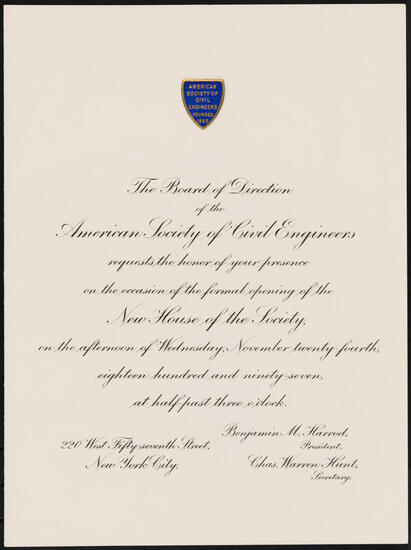 AMERICAN
SOCIETY OF
CIVIL
ENGINEERS
FOUNDED
1852
The Board of Direction
of the
American Society of Civil Engineers
requests the honor of your presence
on the occasion of the formal opening of the
New House of the Society,
on the afternoon of Wednesday, November twenty fourth,
eighteen hundred and ninety seven,
at half past three o'clock.
Benjamin M. Harrod,
President.
220 West Fifty-seventh Street,
New York City.
Chas. Warren Hunt,
Secretary.